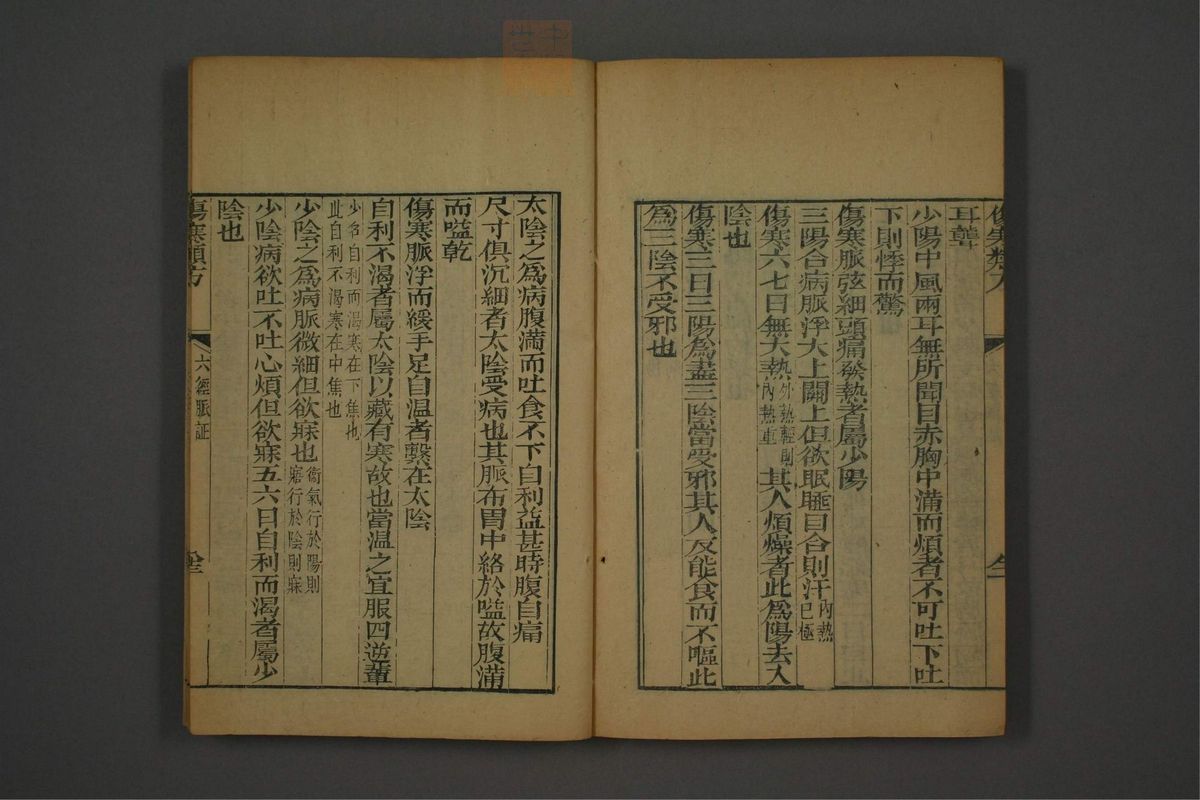 傷寒類方
耳聾
少陽中風兩耳無所聞目赤胸中滿而煩者不可吐下吐
下則悸而驚
傷寒脈弦細頭痛發熱者屬少陽
三陽合病脈浮大上關上但欲眠睡目合則汗內熱已極
傷寒六七日無大熱外熱輕則內熱重其人煩燥者此爲陽去入
陰也
傷寒三日三陽爲盡三陰當受邪其人反能食而不嘔此
爲三陰不受邪也
太陰之爲病腹滿而吐食不下自利益甚時腹自痛
尺寸俱沉細者太陰受病也其脈布胃中絡於嗌故腹滿
而嗌乾
傷寒脈浮而緩手足自温者繫在太陰
自利不渴者屬太陰以藏有寒故也當温之宜服四逆輩
少名自利而渴寒在下焦也
此自利不渴寒在中焦也
少陰之爲病脈微細但欲寐也衛氣行於陽則寤行於陰則寐
少陰病欲吐不吐心煩但欲寐五六日自利而渴者屬少
陰也
傷寒類方
六經脈証